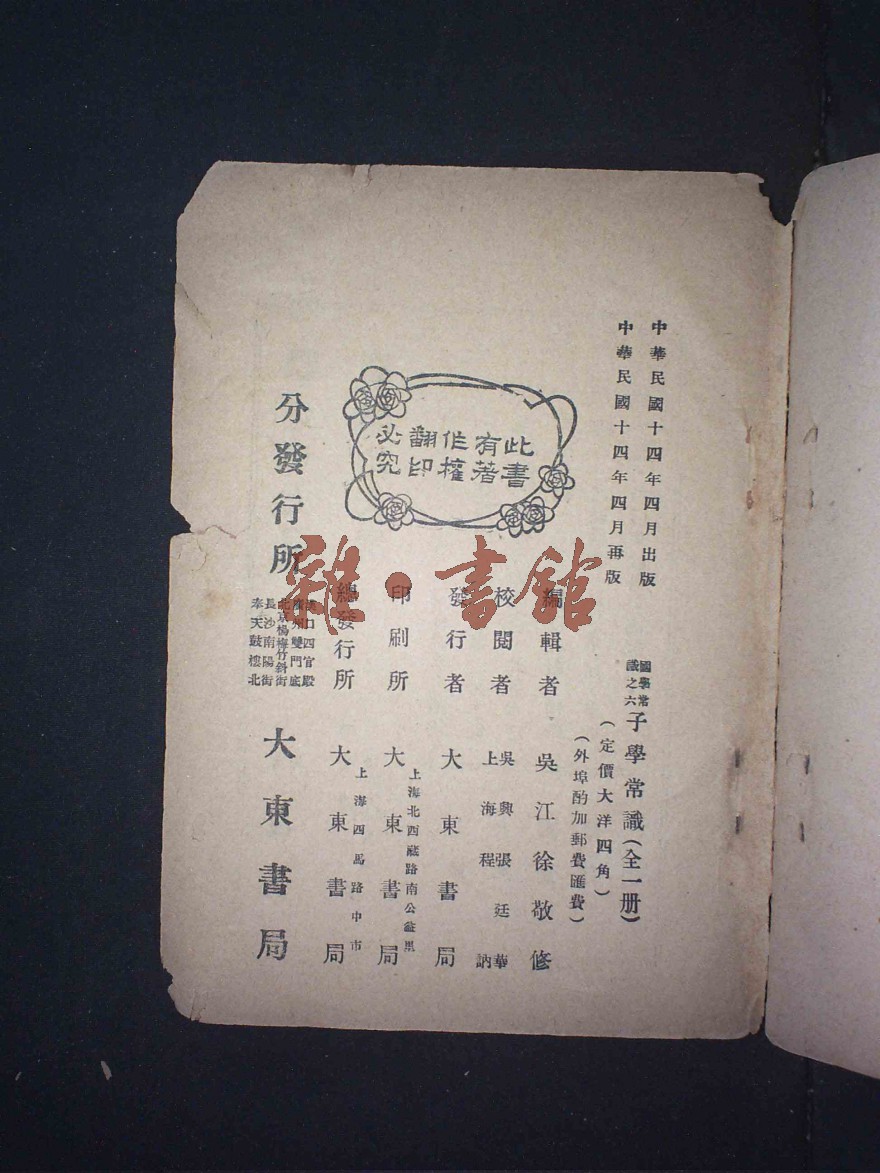 中華民國十四年四月出版
中華民國十四年四月再版
國學常
識之六
子學常識(全一册)
(定價大洋四角)
(外埠酌加郵費匯費)
編輯者 吳江徐敬修
校閱者
吳興張廷華
上海程訥
發行者 大東書局
上海北西藏路南公益里
印刷所 大東書局
上海四馬路中市
總發行所 大東書局
此書
有著
作權
翻印
必究
分發行所
漢口四官殿
廣州雙門底
北京楊梅竹斜街
長沙南陽街
奉天鼓樓北
大東書局
雜·書館